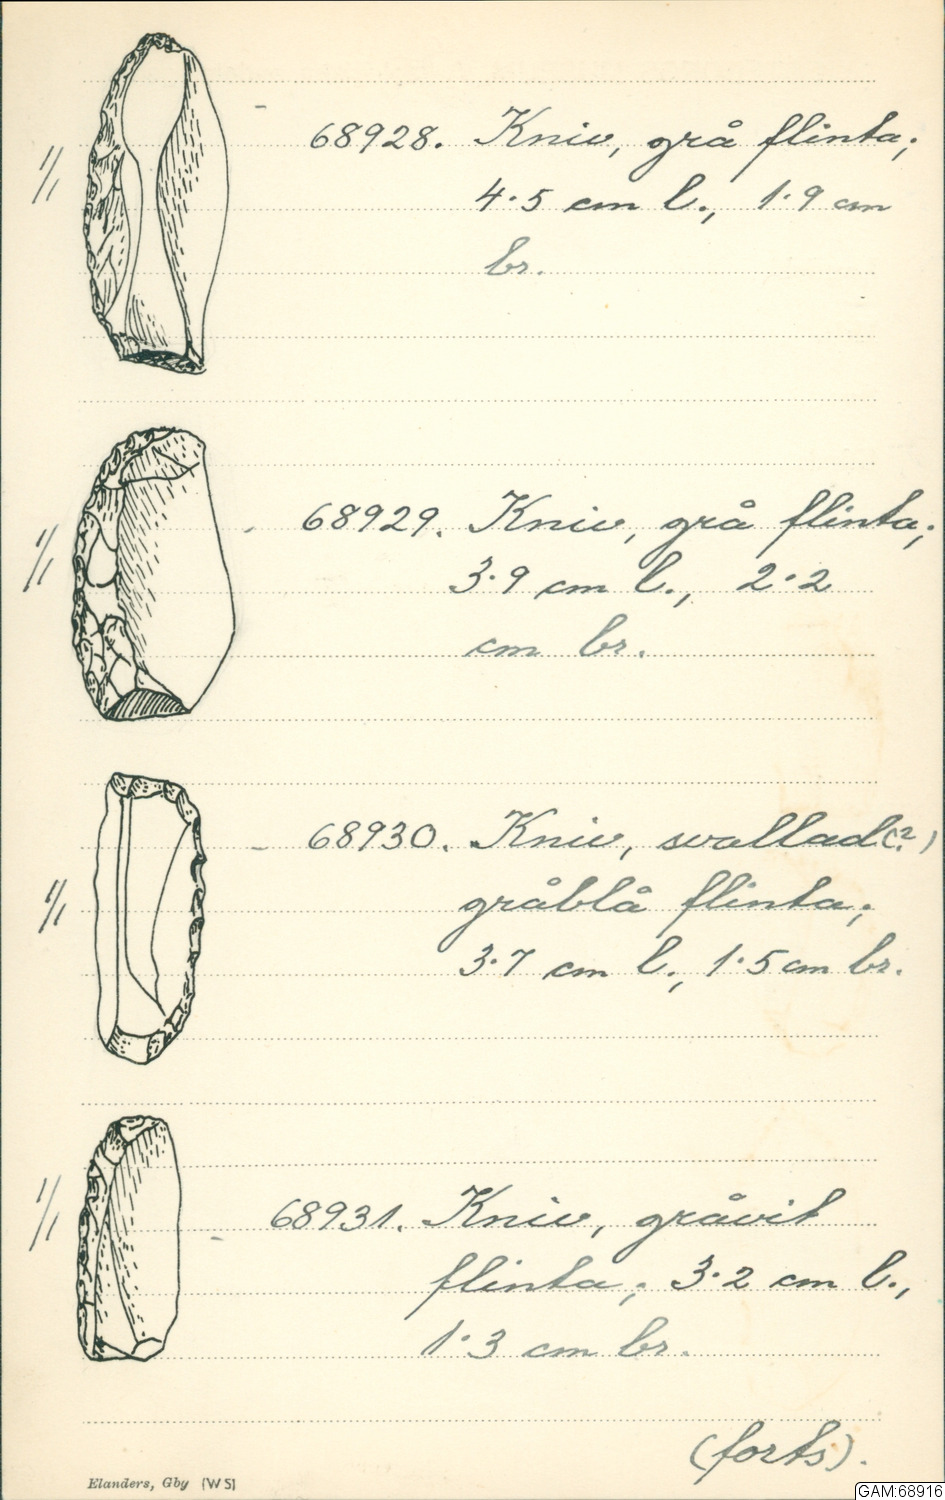 1/1
68928. Kniv, grå flinta;
4·5 cm l., 1·9 cm
br.
1/1
68929. Kniv, grå flinta;
3·9 cm l., 2·2
cm br.
1/1
68930. Kniv, svallad(?)
gråblå flinta;
3·7 cm l., 1·5 cm br.
1/1
68931. Kniv, gråvit
flinta; 3·2 cm l.,
1·3 cm br.
(forts).
Elanders, Gby (W S)
GAM:68916